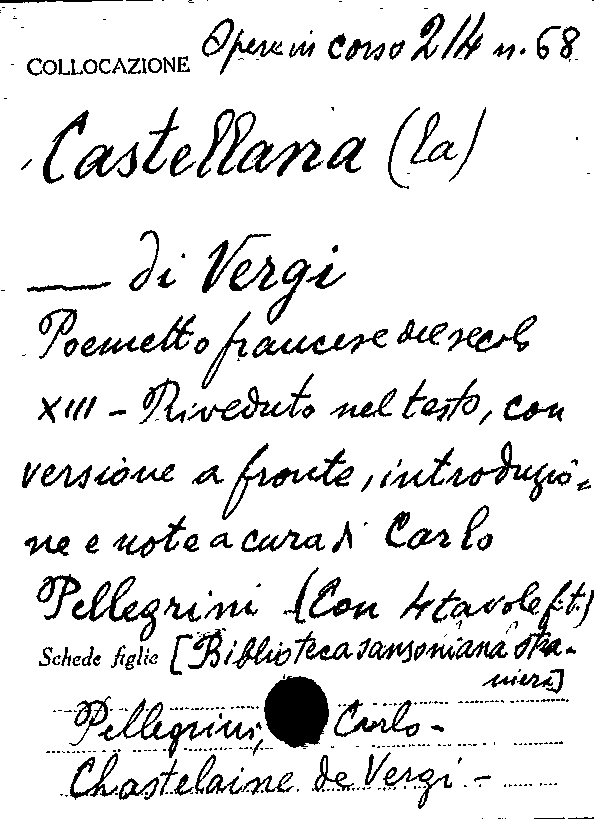 COLLOCAZIONE Opere in corso 214 n. 68
Castellana (la)
— di Vergi
Poemetto francese del secolo
XIII – Riveduto nel testo, con
versione a fronte, introduzio-
ne e note a cura di Carlo
Pellegrini (Con 4 tavole f.t.)
Schede figlie [Biblioteca sansoniana stra-
niera]
Pellegrini, Carlo –
Chastelaine de Vergi –